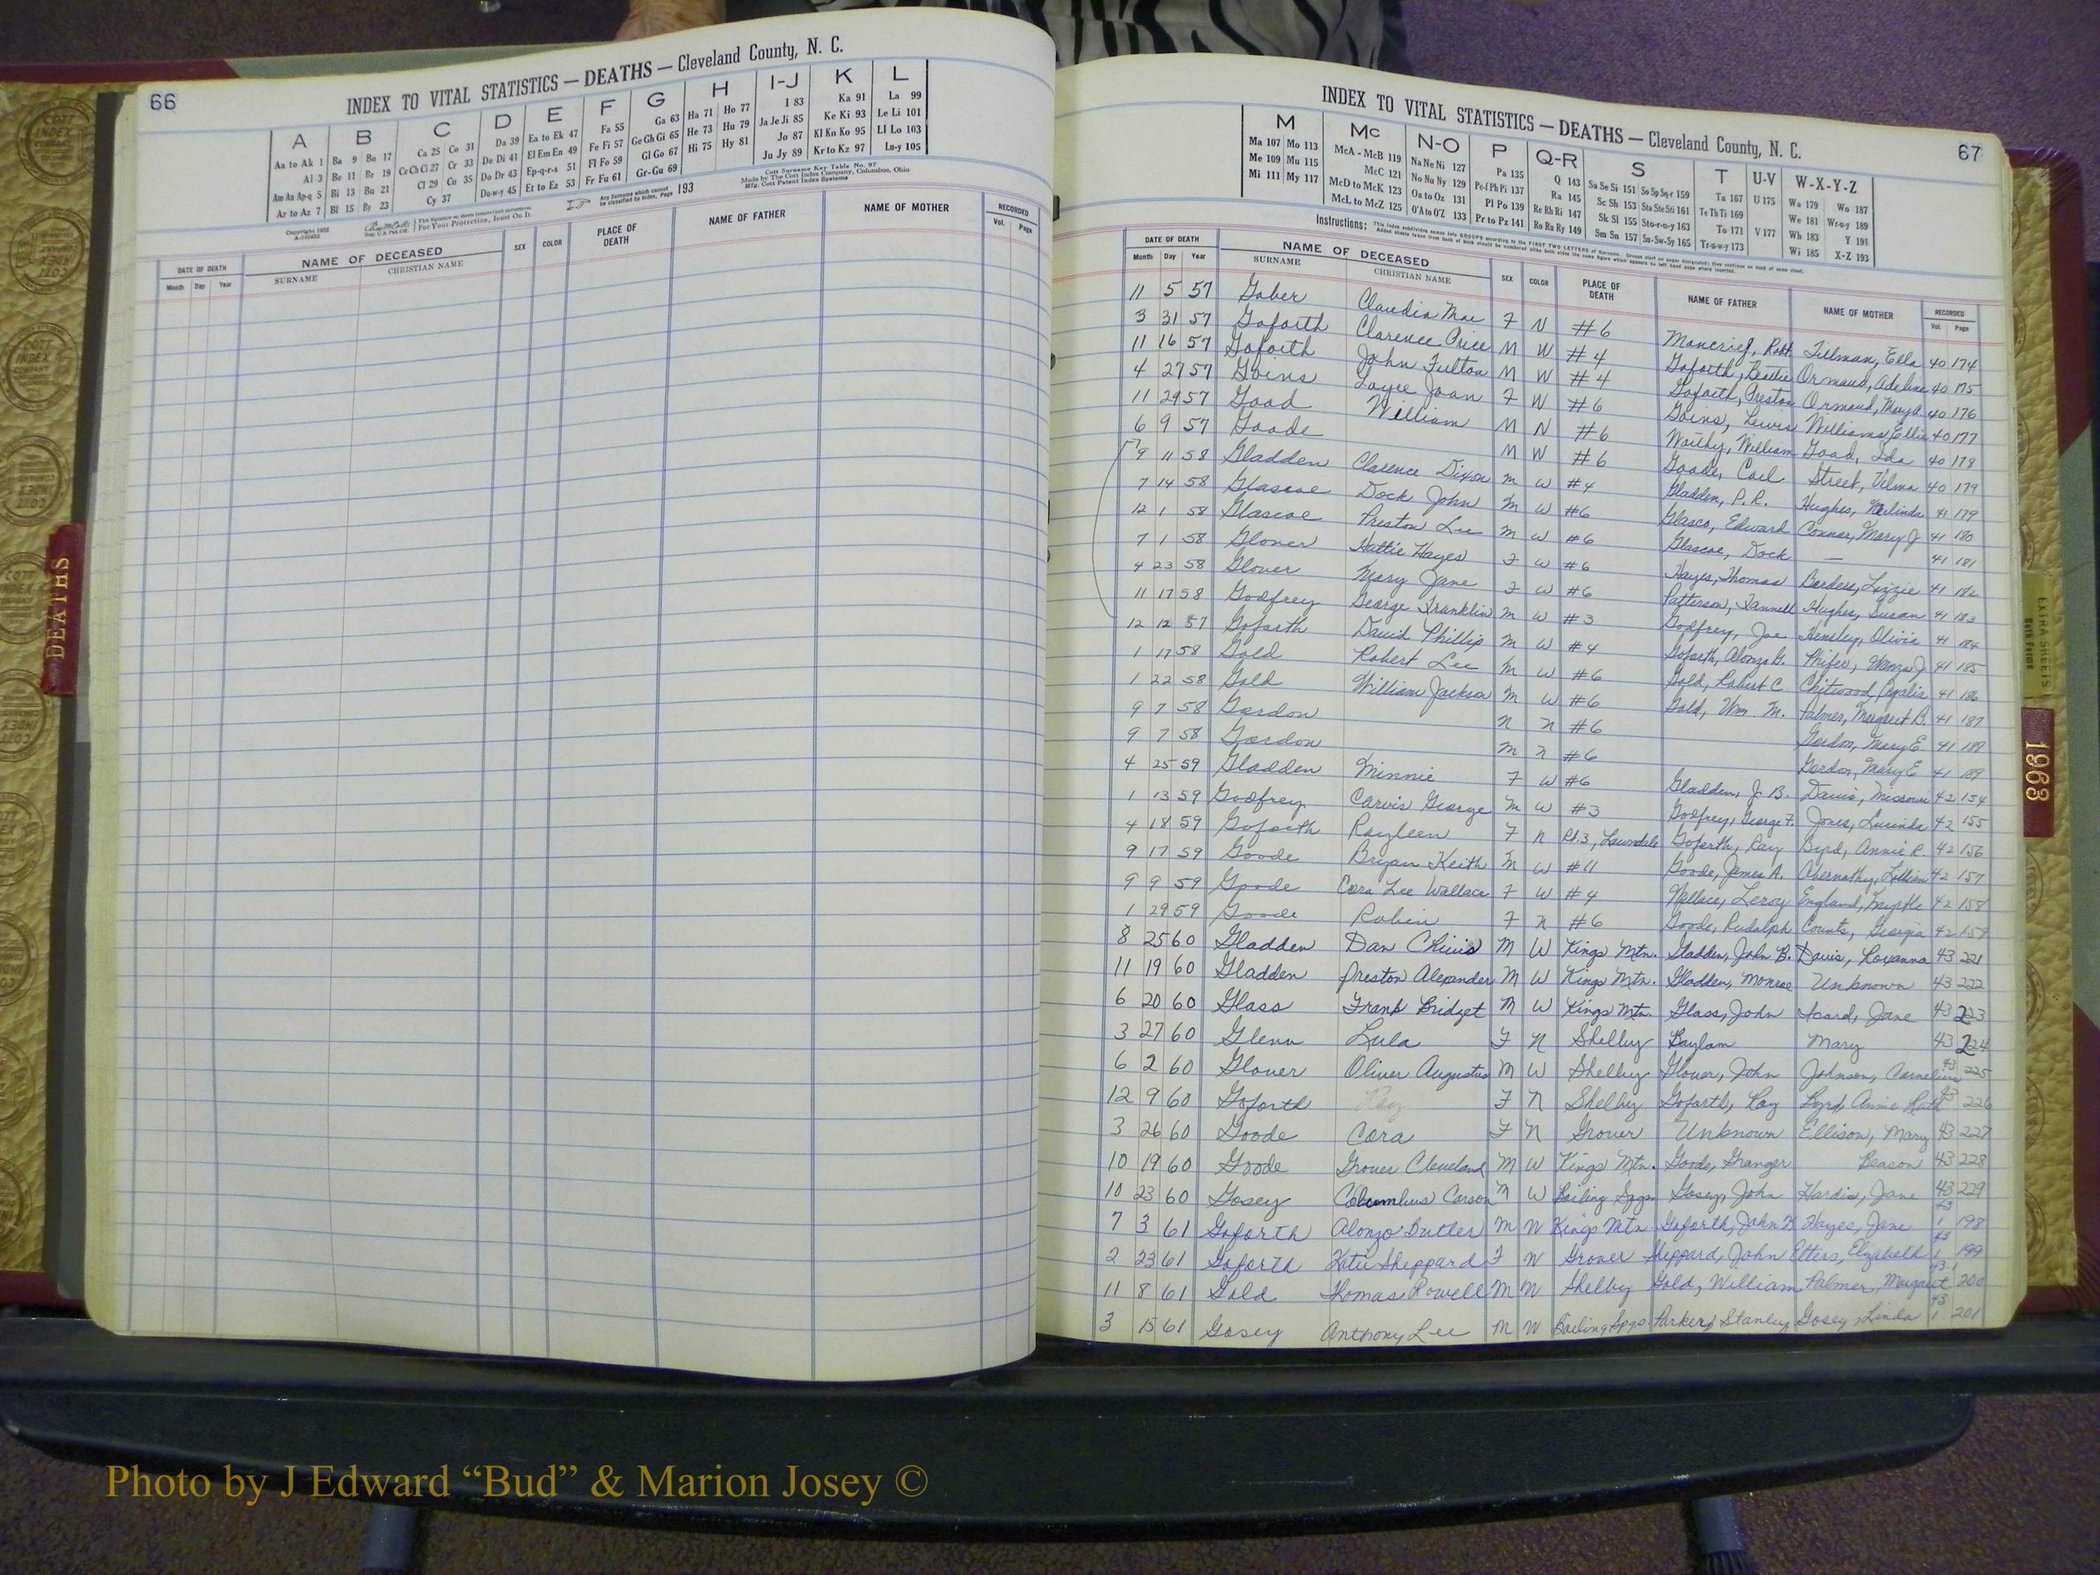 66
INDEX TO VITAL STATISTICS — DEATHS — Cleveland County, N. C.
A B C D E F G H I-J K L
Aa to Ak 1 Ba 9 Bo 17 Ca 25 Co 31 Da 39 Ea to Ek 47 Fa 55 Ga 63 Ha 71 Ho 77 I 83 Ka 91 La 99
Al 3 Be 11 Br 19 Ce Ch Ci 27 Cr 33 De Di 41 El Em En 49 Fe Fi 57 Ge Gh Gi 65 He 73 Hu 79 Ja Je Ji 85 Ke Ki 93 Le Li 101
Am An Ap-q 5 Bi 13 Bu 21 Cl 29 Cu 35 Do Dr 43 Ep-q-r-s 51 Fl Fo 59 Gl Go 67 Hi 75 Hy 81 Jo 87 Kl Kn Ko 95 Ll Lo 103
Ar to Az 7 Bl 15 By 23 Cy 37 D-e-w-y 45 Et to Ez 53 Fr Fu 61 Gr-Gu 69 Ju Jy 89 Kr to Kz 97 Lu-y 105
Cott Surname Key Table No. 97
Made by The Cott Index Company, Columbus, Ohio
Mfg. Cott Patent Index Systems
Any Surname which cannot be classified by Index, Page 193
For Your Protection, Insist On It.
DATE OF DEATH Month Day Year NAME OF DECEASED SURNAME CHRISTIAN NAME SEX COLOR PLACE OF DEATH NAME OF FATHER NAME OF MOTHER RECORDED Vol. Page
DEATHS
67
INDEX TO VITAL STATISTICS — DEATHS — Cleveland County, N. C.
M Mc N-O P Q-R S T U-V W-X-Y-Z
Ma 107 Mo 113 McA - McB 119 Na Ne Ni 127 Pa 135 Q 143 Sa Se Si 151 So Sp Sq-r 159 Ta 167 U 175 Wa 179 Wo 187
Me 109 Mu 115 McC 121 No Nu Ny 129 Pe-f Ph Pi 137 Ra 145 Sc Sh 153 Sta Ste Sti 161 Te Th Ti 169 We 181 Wr-u-y 189
Mi 111 My 117 McD to McK 123 Oa to Oz 131 Pl Po 139 Re Rh Ri 147 Sk Sl 155 Sto-r-u-y 163 To 171 V 177 Wh 183 Y 191
McL to McZ 125 O'A to O'Z 133 Pr to Pz 141 Ro Ru Ry 149 Sm Sn 157 Su-Sw-Sy 165 Tr-u-w-y 173 Wi 185 X-Z 193
Instructions:
DATE OF DEATH Month Day Year NAME OF DECEASED SURNAME CHRISTIAN NAME SEX COLOR PLACE OF DEATH NAME OF FATHER NAME OF MOTHER RECORDED Vol. Page
11 5 57 Gober Claudia Mae F N #6 Moncrief, Robt Tillman, Ella 40 174
3 31 57 Goforth Clarence Price M W #4 Goforth, Ormand, Adeline 40 175
11 16 57 Goforth John Fulton M W #4 Goforth, Preston Ormand, Mary A. 40 176
4 27 57 Goins Loyce Joan F W #6 Goins, Lewis Williams, Ellie 40 177
11 29 57 Good William M N #6 Worthy, William Good, Ida 40 178
6 9 57 Goode M W #6 Goode, Carl Street, Velma 40 179
9 11 58 Gladden Clarence Dixon M W #4 Gladden, P. R. Hughes, Melinda 41 179
7 14 58 Glascoe Dock John M W #6 Glasco, Edward Connor, Mary J 41 180
12 1 58 Glascoe Preston Lee M W #6 Glascoe, Dock — 41 181
7 1 58 Glover Hattie Hayes F W #6 Hayes, Thomas Borders, Lizzie 41 182
4 23 58 Glover Mary Jane F W #6 Patterson, Hughes, Susan 41 183
11 17 58 Godfrey George Franklin M W #3 Godfrey, Joe Hensley, Olivia 41 184
12 12 57 Goforth David Phillip M W #4 Goforth, Alonzo G. Phifer, J. 41 185
1 17 58 Gold Robert Lee M W #6 Gold, Robert C Chitwood, 41 186
1 22 58 Gold William Jackson M W #6 Gold, Wm. M. Palmer, Margaret B. 41 187
9 7 58 Gordon N N #6 Gordon, Mary E 41 188
9 7 58 Gordon M N #6 Gordon, Mary E 41 189
4 25 59 Gladden Minnie F W #6 Gladden, J. B. Davis, Missouri 42 154
1 13 59 Godfrey Carvis George M W #3 Godfrey, George F. Jones, Lucinda 42 155
4 18 59 Goforth Rayleen F N Rt. 3, Lawndale Goforth, Ray Byrd, Annie R. 42 156
9 17 59 Goode Bryan Keith M W #11 Goode, James A. Abernathy, Lillian 42 157
9 9 59 Goode Cora Lee Wallace F W #4 Wallace, Leroy England, Myrtle 42 158
1 29 59 Goode Robin F N #6 Goode, Rudolph Counts, Georgia 42 159
8 25 60 Gladden Dan Chivis M W Kings Mtn. Gladden, John B. Davis, Roxanna 43 221
11 19 60 Gladden Preston Alexander M W Kings Mtn. Gladden, Monroe Unknown 43 222
6 20 60 Glass Frank Bridget M W Kings Mtn. Glass, John Isard, Jane 43 223
3 27 60 Glenn Lula F N Shelby Baylam Mary 43 224
6 2 60 Glover Oliver Augustus M W Shelby Glover, John Johnson, Cornelius 43 225
12 9 60 Goforth Ray F N Shelby Goforth, Roy Byrd, Annie Ruth 43 226
3 26 60 Goode Cora F N Grover Unknown Ellison, Mary 43 227
10 19 60 Goode Grover Cleveland M W Kings Mtn. Goode, Granger Beason 43 228
10 23 60 Gosey Columbus Carson M W Boiling Spgs Gosey, John Hardin, Jane 43 229
7 3 61 Goforth Alonzo Butler M W Kings Mtn Goforth, John Hayes, Jane 43 1 198
2 23 61 Goforth Katie Sheppard F W Grover Sheppard, John Etters, Elizabeth 43 1 199
11 8 61 Gold Thomas Powell M W Shelby Gold, William Palmer, Margaret 43-1 200
3 15 61 Gosey Anthony Lee M W Boiling Spgs Parker, Stanley Gosey, Linda 43 1 201
EXTRA SHEETS
1963
Photo by J Edward “Bud” & Marion Josey ©